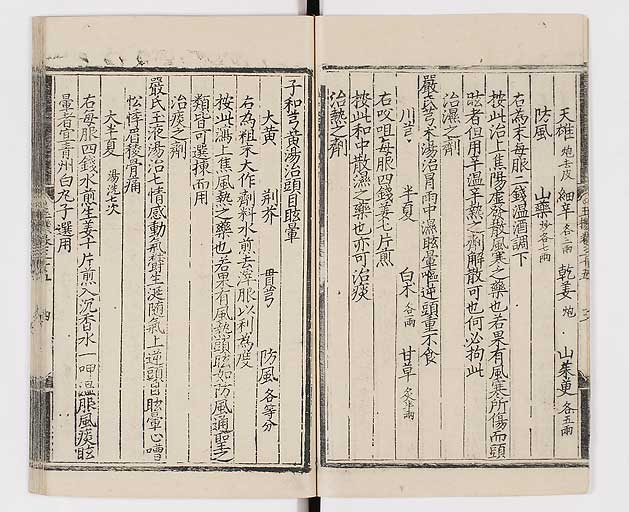 天雄炮去皮 細辛各二兩 乾姜炮 山茱萸各五兩
防風 山藥炒各七兩
右為末每服二錢温酒調下
按此治上焦陽虚發散風寒之藥也若果有風寒所傷而頭
眩者但用辛温辛熱之劑解散可也何必拘此
治濕之劑
嚴氏芎朮湯治冒雨中濕眩暈嘔逆頭重不食
川芎 半夏 白朮各一兩 甘草炙半兩
右㕮咀每服四錢姜七片煎
按此和中散濕之藥也亦可治痰
治熱之劑
子和芎黄湯治頭目眩暈
大黄 荆芥 貫芎 防風各等分
右為粗末大作劑料水煎去滓服以利為度
按此瀉上焦風熱之藥也若果有風熱頭眩如防風通聖之
類皆可選揀而用
治痰之劑
嚴氏玉液湯治七情感動氣欝生涎隨氣上逆頭目眩暈心嘈
忪悸眉稜骨痛
大半夏湯洗七次
右每服四錢水煎生姜十片煎入沉香水一呷温服風痰眩
暈者宜青州白丸子選用